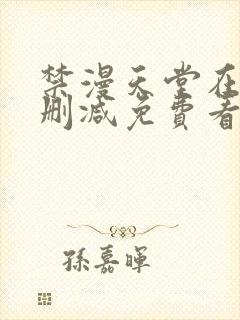 禁漫天堂在
删减免費看
孫嘉暉